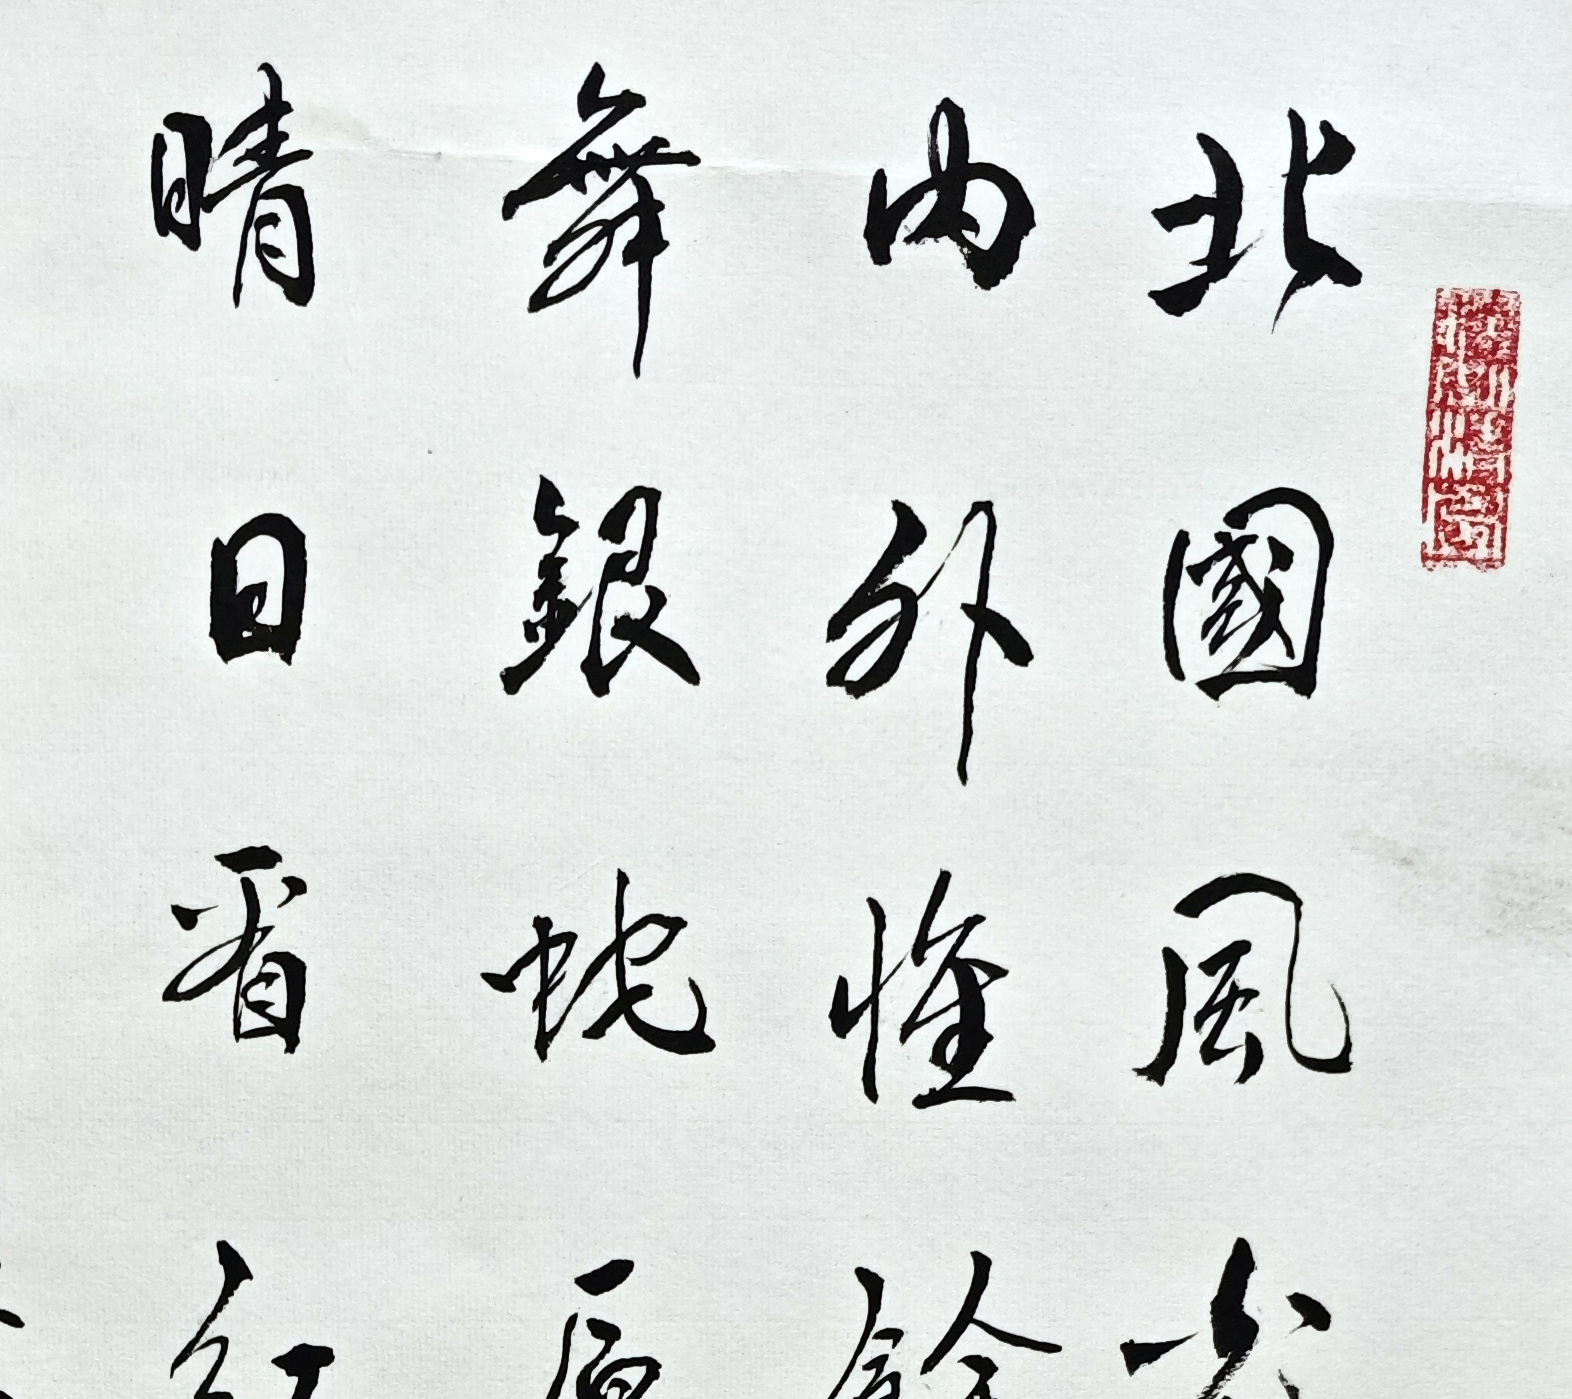 北國風光
內外惟餘
舞銀蛇原
晴日看紅